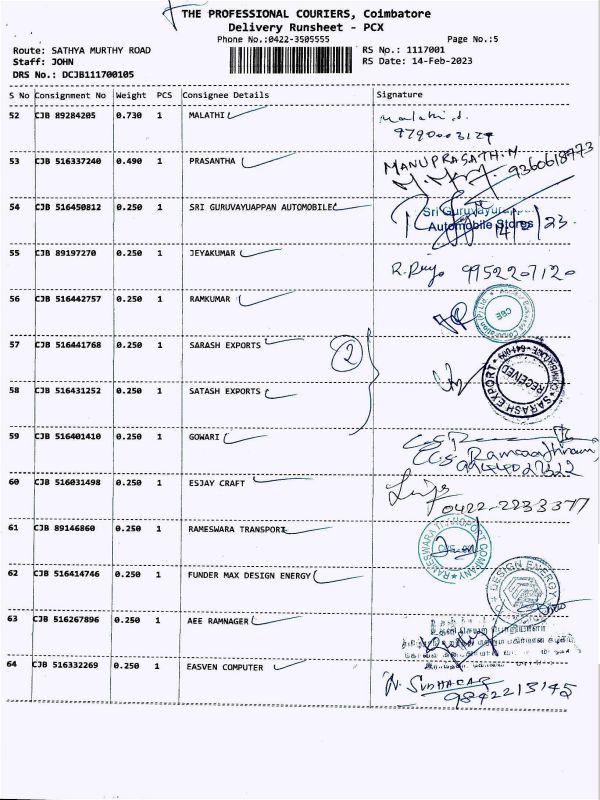 THE PROFESSIONAL COURIERS, Coimbatore
Delivery Runsheet - PCX
Phone No.:0422-3505555
Page No.:5
Route: SATHYA MURTHY ROAD
RS No.: 1117001
Staff: JOHN
RS Date: 14-Feb-2023
DRS No.: DCJB111700105
S No Consignment No Weight PCS Consignee Details Signature
52 CJB 89284205 0.730 1 MALATHI
9790003129
53 CJB 516337240 0.490 1 PRASANTHA MANUPRASATH.M
9360618973
54 CJB 516450812 0.250 1 SRI GURUVAYUAPPAN AUTOMOBILE
Automobile Stores
55 CJB 89197270 0.250 1 JEYAKUMAR
9952207120
56 CJB 516442757 0.250 1 RAMKUMAR
CBE
57 CJB 516441768 0.250 1 SARASH EXPORTS
2
SARASH EXPORT
RECEIVED
58 CJB 516431252 0.250 1 SATASH EXPORTS
59 CJB 516401410 0.250 1 GOWARI
60 CJB 516031498 0.250 1 ESJAY CRAFT
0422-2233377
61 CJB 89146860 0.250 1 RAMESWARA TRANSPORT
RAMESWARA TRANSPORT COMPANY
62 CJB 516414746 0.250 1 FUNDER MAX DESIGN ENERGY
DESIGN ENERGY
63 CJB 516267896 0.250 1 AEE RAMNAGER
64 CJB 516332269 0.250 1 EASVEN COMPUTER
N. SUDHAKAR
9842213145